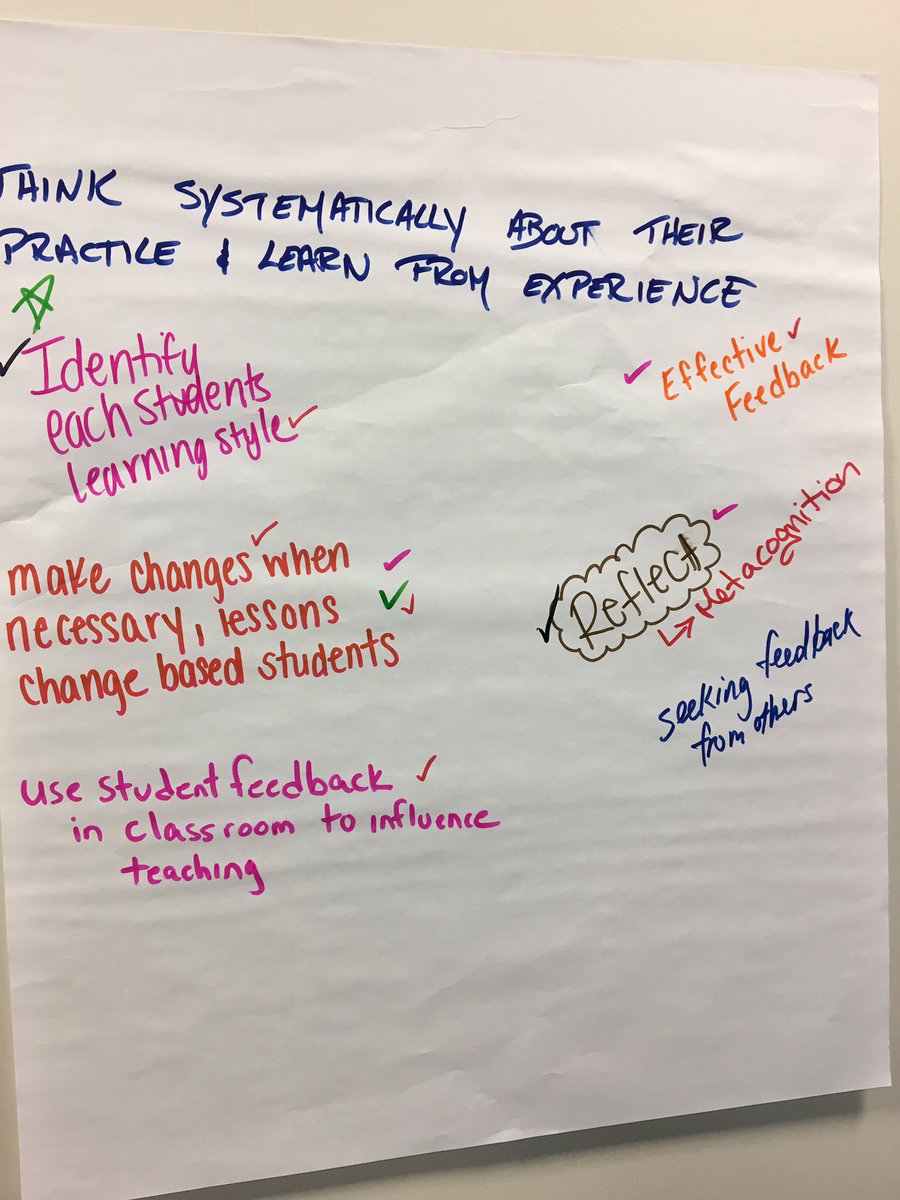 THINK SYSTEMATICALLY ABOUT THEIR
PRACTICE & LEARN FROM EXPERIENCE
Identify
each students
learning style
make changes when
necessary, lessons
change based students
use student feedback
in classroom to influence
teaching
Effective
Feedback
Reflect
Metacognition
seeking feedback
from others